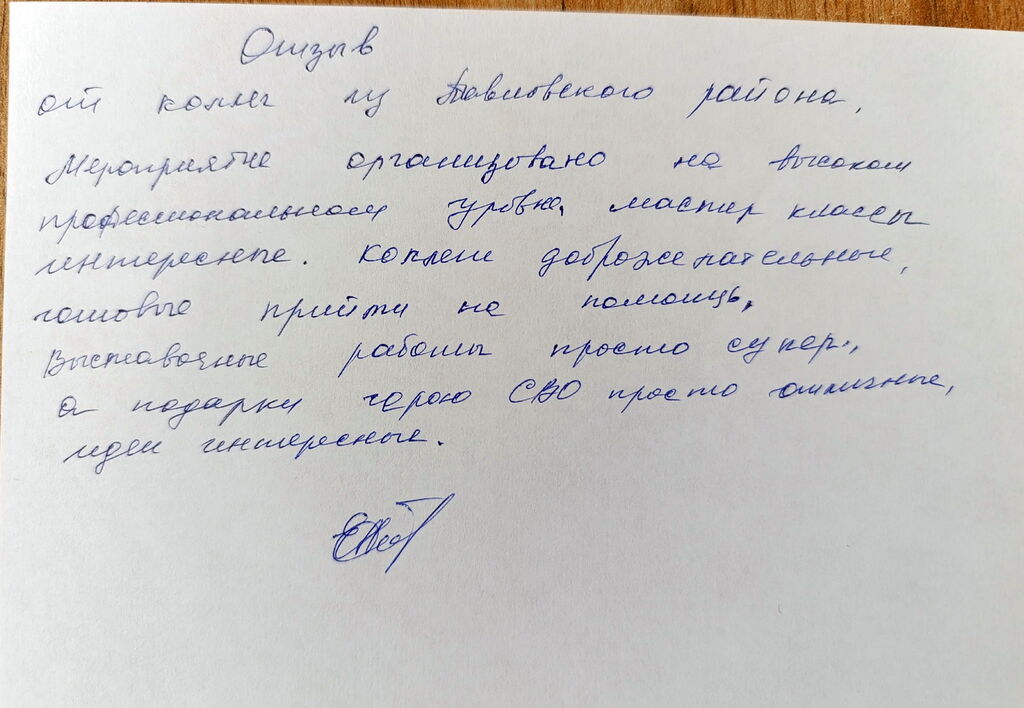 Отзыв
от коллег из Павловского района.
Мероприятие организовано на высоком
профессиональном уровне, мастер классы
интересные. Коллеги доброжелательные,
готовые прийти на помощь.
Выставочные работы просто супер.,
а подарки герою СВО просто отличные,
идеи интересные.